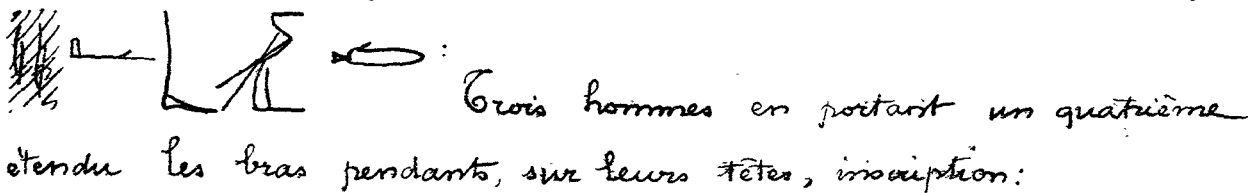 : Trois hommes en portant un quatrième
étendu les bras pendants, sur leurs têtes, inscription: